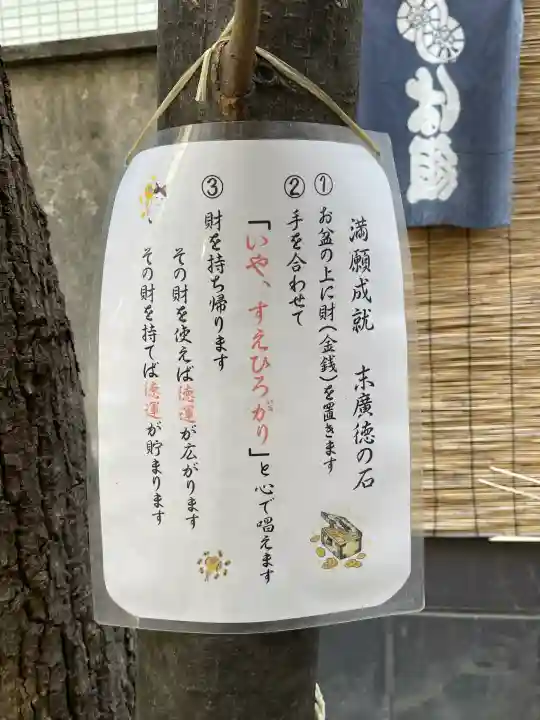 満願成就　末廣徳の石
①お盆の上に財（金銭）を置きます
②手を合わせて
「いや、すえひろがり」と心で唱えます
③財を持ち帰ります
その財を使えば徳運が広がります
その財を持てば徳運が貯まります